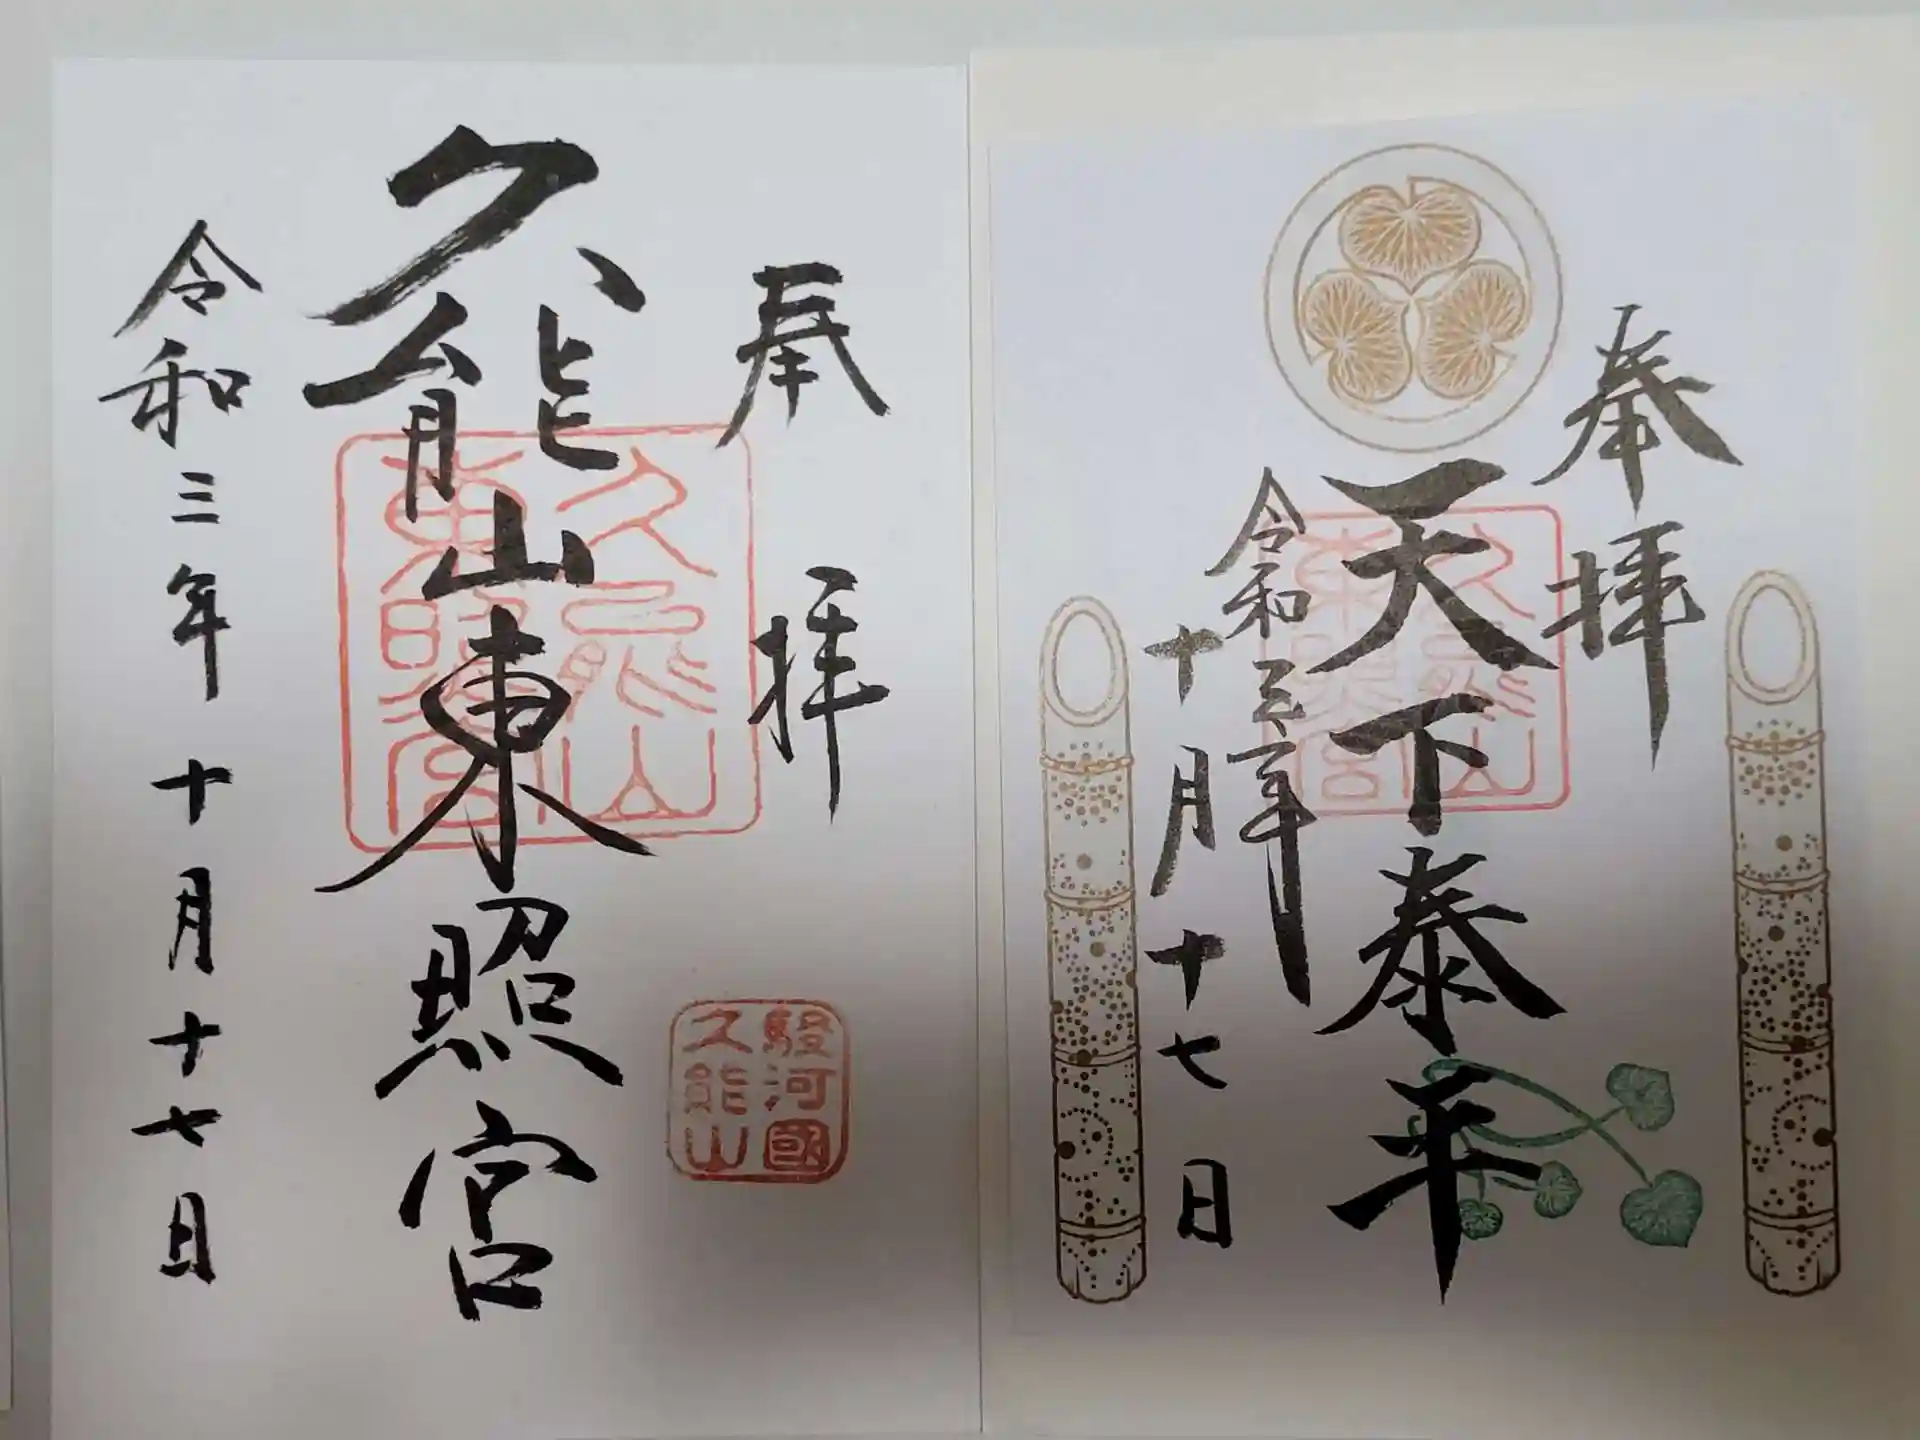 奉拝
天下泰平
令和三年
十月十七日
奉拝
久能山東照宮
令和三年十月十七日
久能山
東照宮
駿河國
久能山